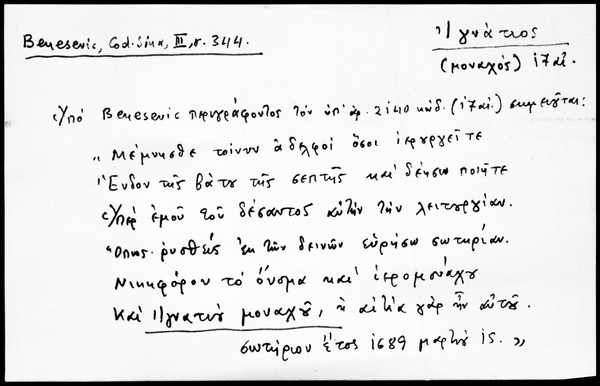 Benesevic, Cod. Sina, III, σ. 344.
Ἰγνάτιος
(μοναχός) ιζ αἰ.
Ὑπό Benesevic περιγράφοντος τὸν ὑπ' ἀρ. 2140 κώδ. (ιζ αἰ.) σημειοῦται:
„ Μέμνησθε τοίνυν ἀδελφοί ὅσοι ἱερουργεῖτε
Ἔνδον τῆς βάτου τῆς σεπτῆς καί δέησιν ποιῆτε
Ὑπέρ ἐμοῦ τοῦ δέσαντος αὐτήν τήν λειτουργίαν.
Ὅπως ῥυσθείς ἐκ τῶν δεινῶν εὑρήσω σωτηρίαν.
Νικηφόρου τό ὄνομα καί ἱερομονάχου
Καί Ἰγνατίου μοναχοῦ, ἡ αἰτία γάρ ἦν αὐτοῦ.
σωτήριον ἔτος 1689 μαρτίου 15. „